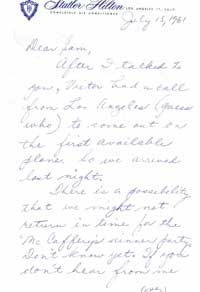 Statler Hilton
LOS ANGELES 17, CALIF.
COMPLETELY AIR CONDITIONED
July 13, 1961
Dear Sam,
After I talked to
you, Victor had a call
from Los Angeles (guess
who) to come out on
the first available
plane. So we arrived
last night.
There is a possibility
that we might not
return in time for the
McCaffery's dinner party.
Don't know yet. If you
don't hear from me
(over)